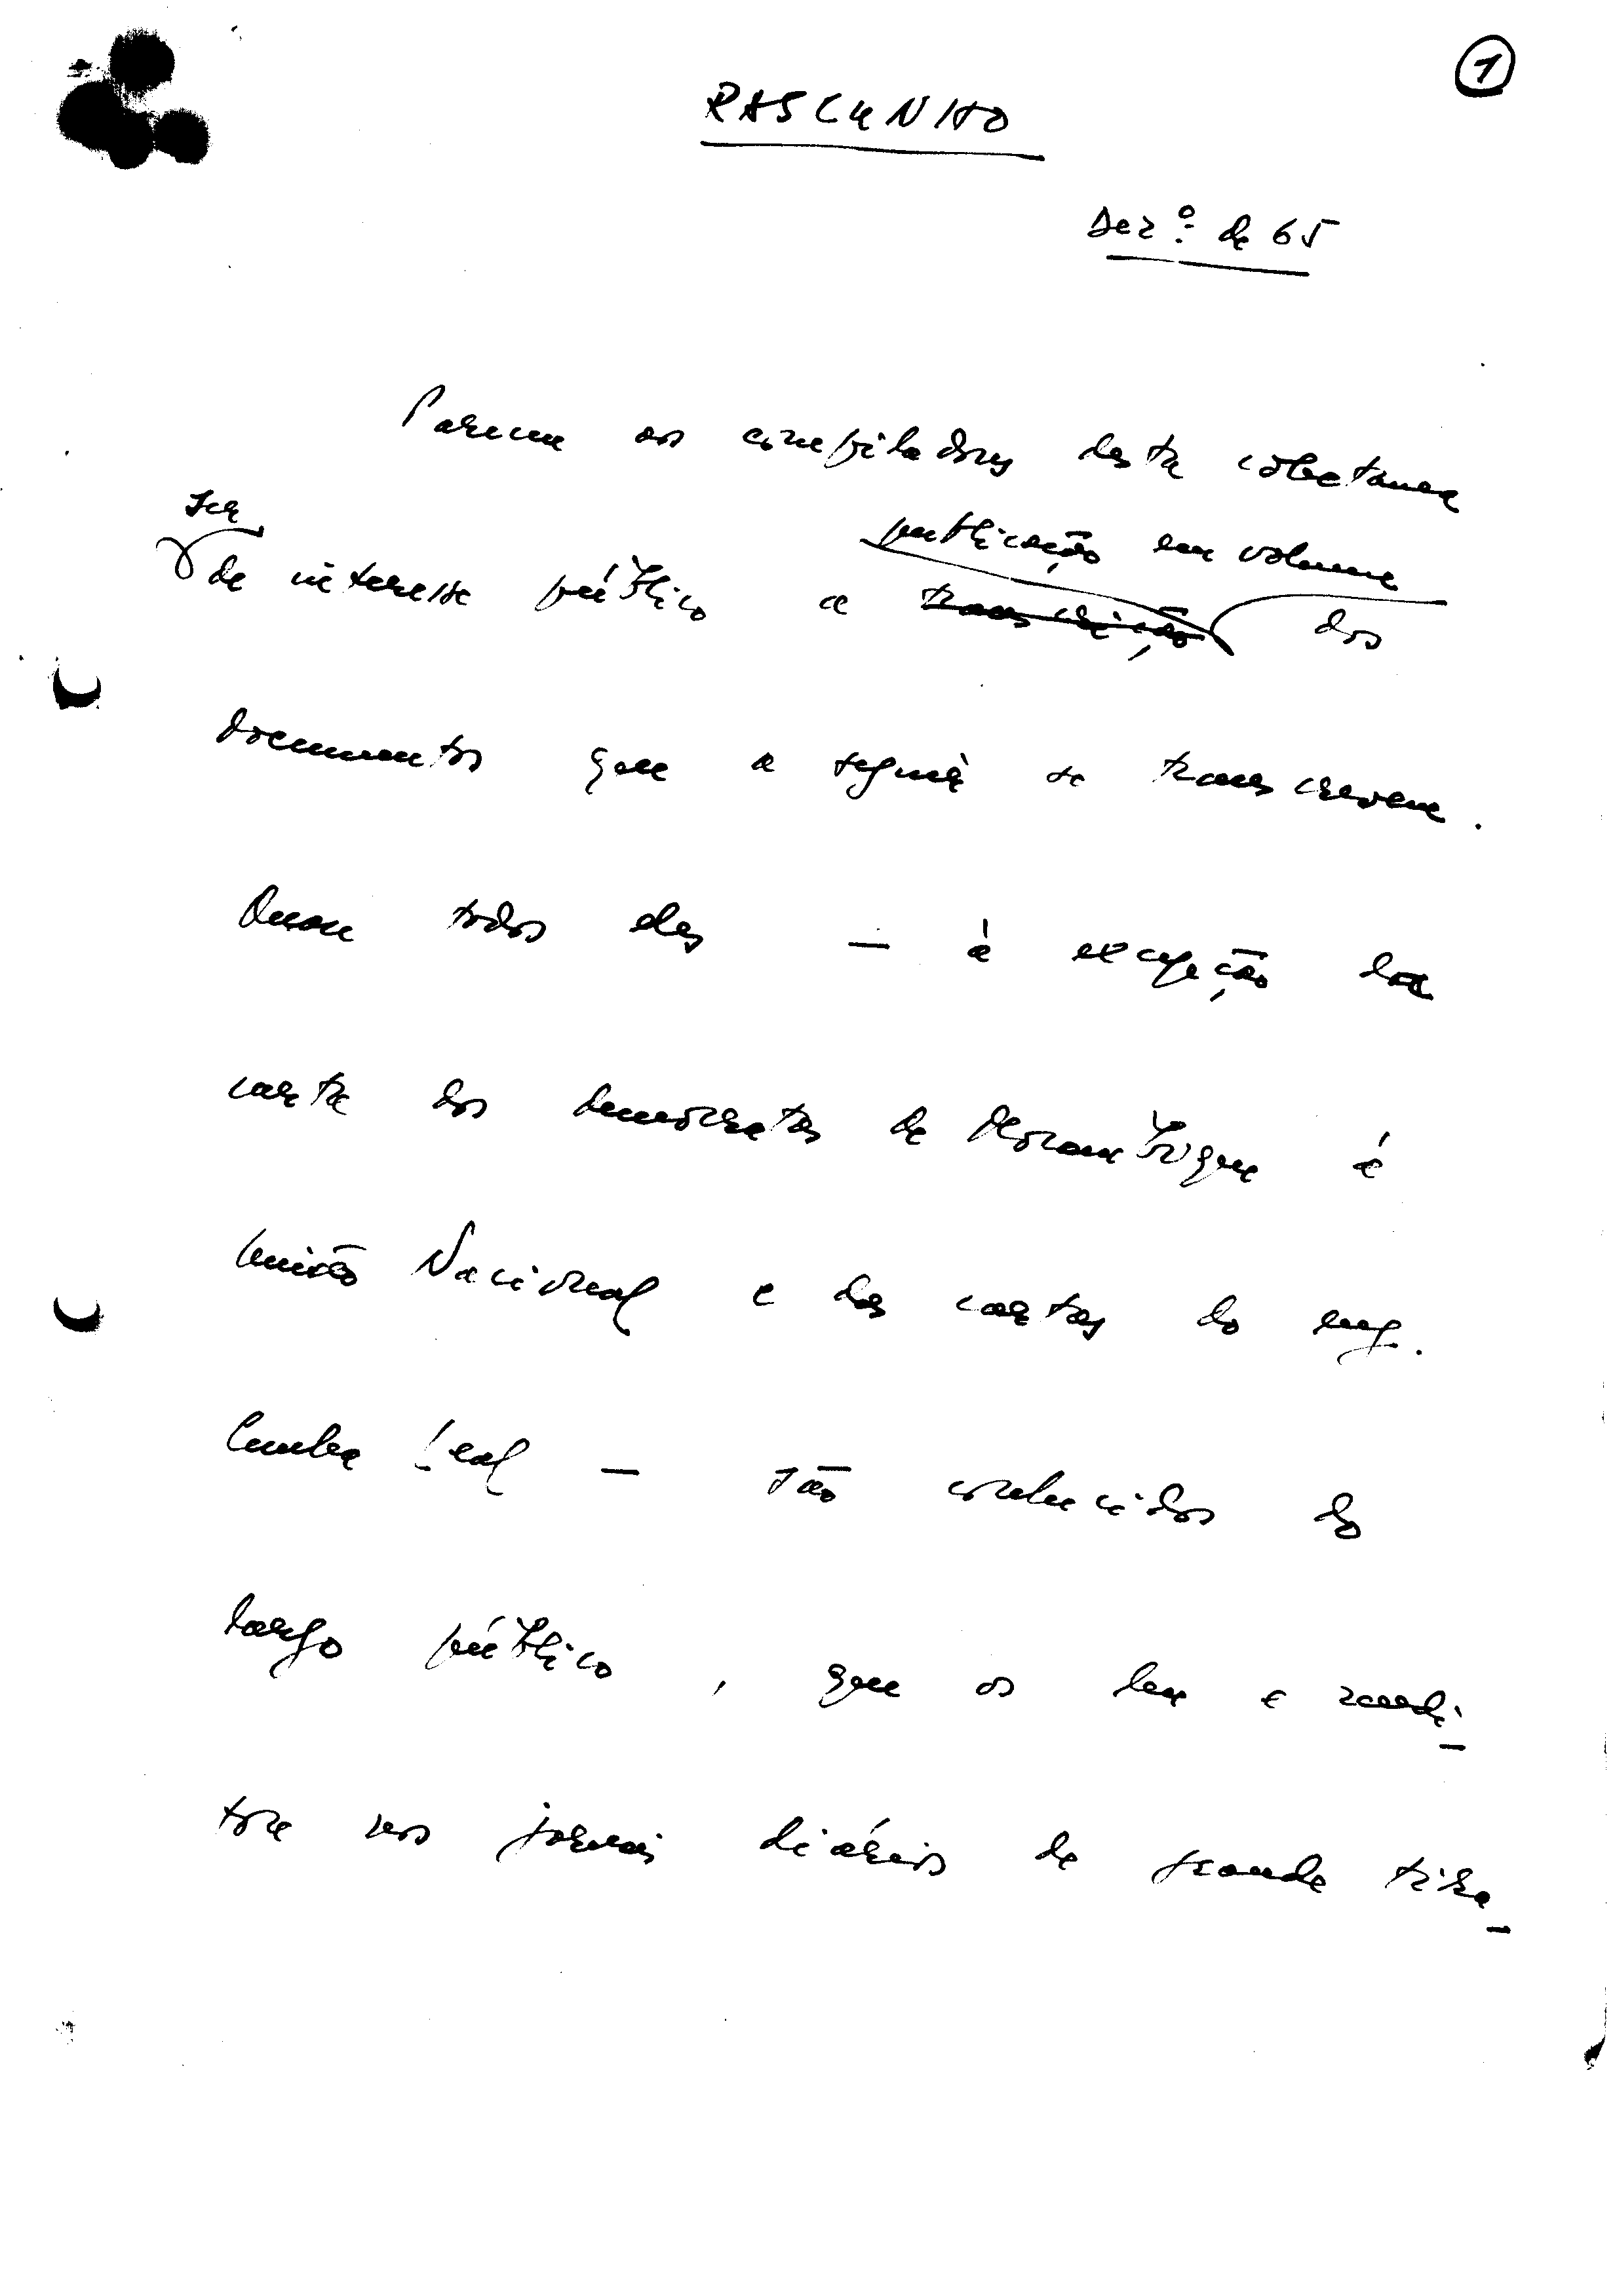 1
RASCUNHO
Dez.º de 65
Pareceu aos compiladores desta colectanea
ser
publicação em volume
de interesse público a transcrição dos
documentos que a seguir se transcrevem.
Quase todos eles — à excepção da
carta dos democratas de Moçambique à
União Nacional e das cartas do eng.
Cunha Leal — são conhecidos do
largo público, que os leu e medi-
tou nos jornais diários de grande tira-